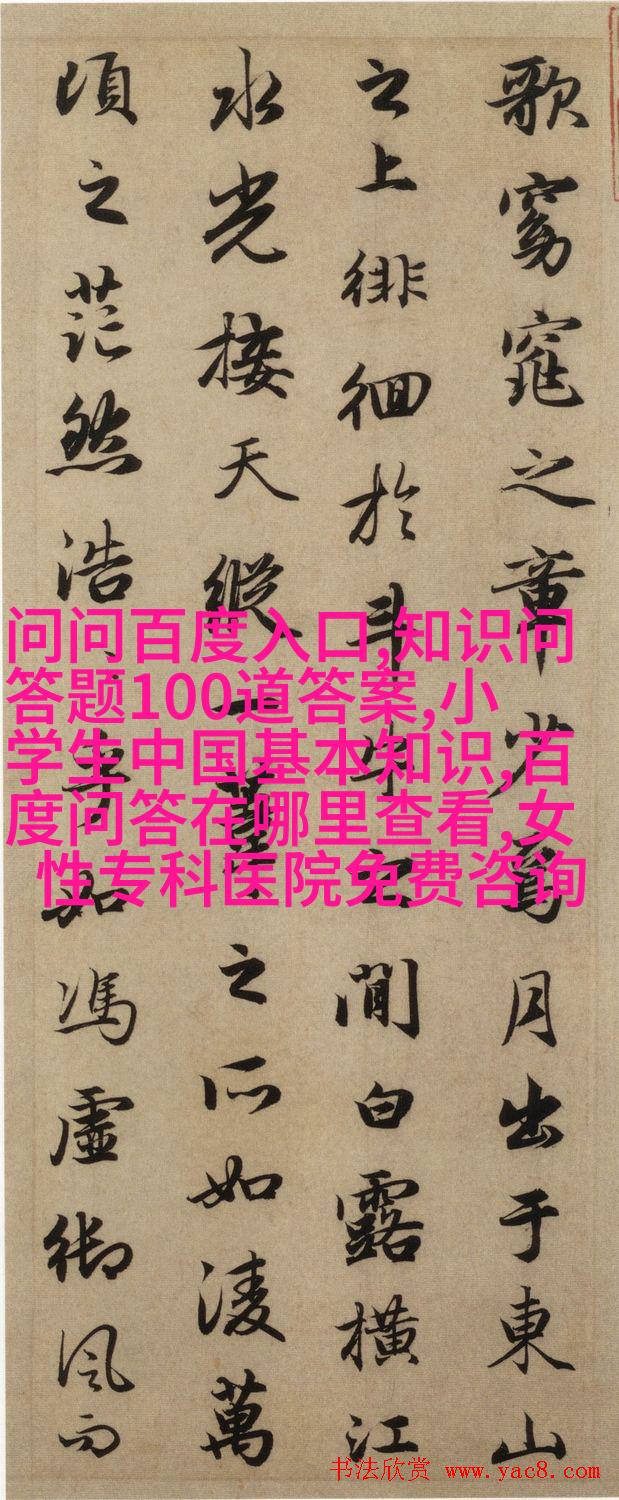 歌窈窕之章少焉月出于東山
之上徘徊於斗牛之間白露橫江
水光接天縱一葦之所如淩萬
頃之茫然浩〻乎如馮虛御風而
问问百度入口,知识问
答题100道答案,小
学生中国基本知识,百
度问答在哪里查看,女
性专科医院免费咨询
书法欣赏 www.yac8.com